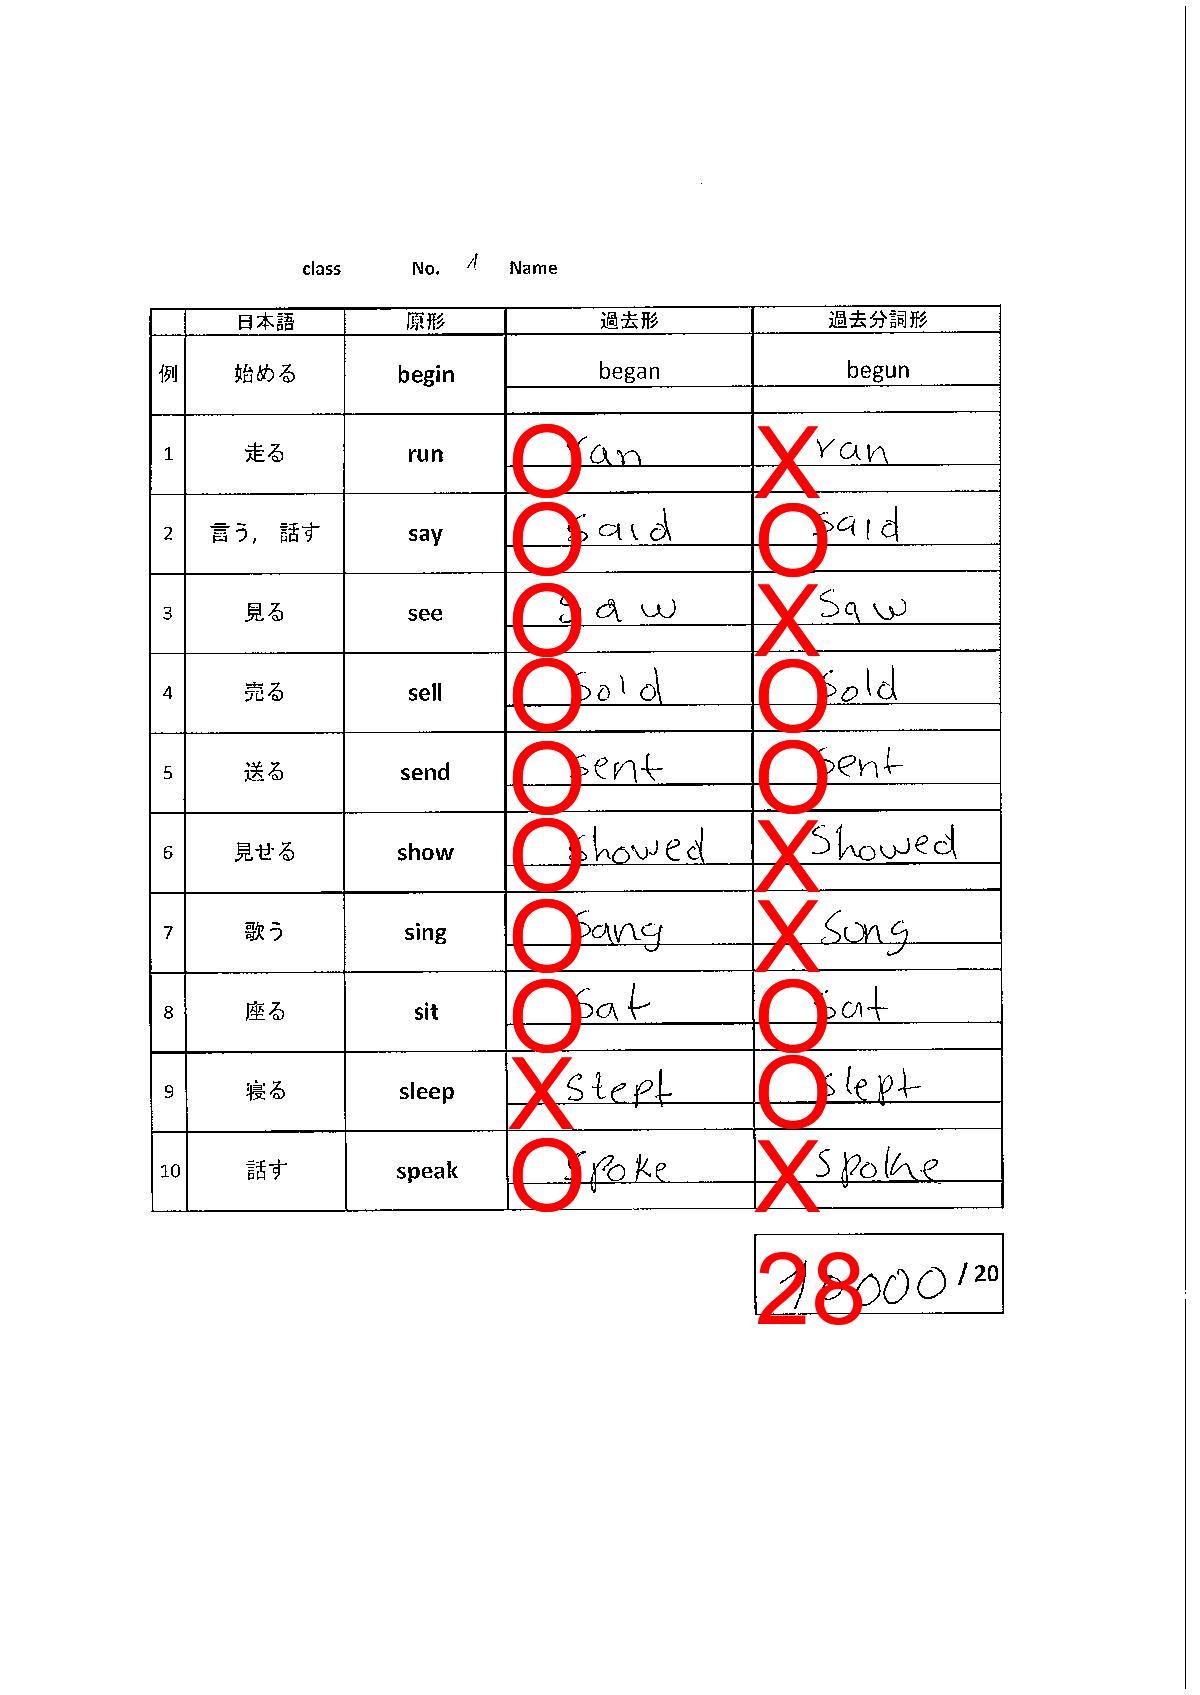 class No. 1 Name
日本語 原形 過去形 過去分詞形
例 始める begin began begun
1 走る run O ran X ran
2 言う, 話す say O said O said
3 見る see O saw X saw
4 売る sell O sold O sold
5 送る send O sent O sent
6 見せる show O showed X showed
7 歌う sing O sang X song
8 座る sit O sat O sat
9 寝る sleep X stept O slept
10 話す speak O spoke X spoke
28 10000 / 20